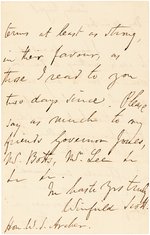 terms at least as strong
in their favour, as
those I read to you
two days since. Please
say as much to my
friends Governor Jones,
Mr. Botts, Mr. Lee &c
&c &c.
In haste Yrs truly,
Winfield Scott.
Hon. W. S. Archer.